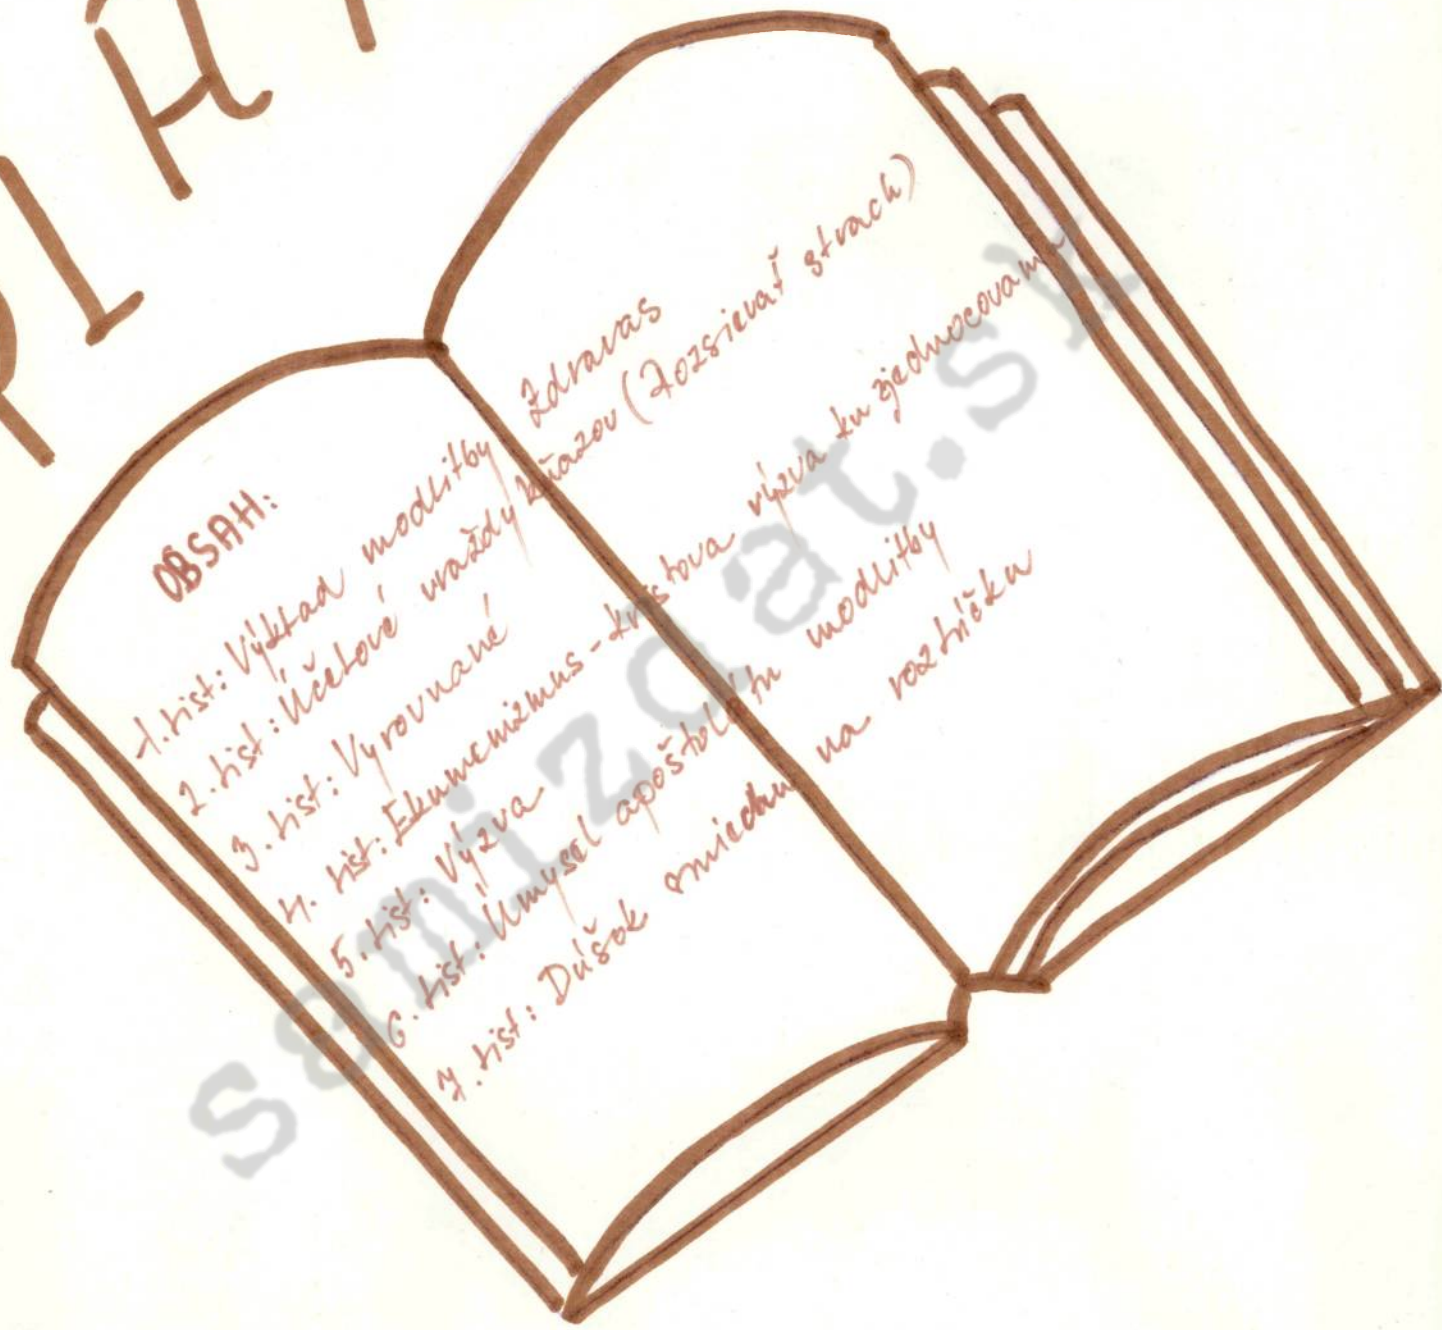 OBSAH:
1. list: Výklad modlitby Zdravas
2. list: Účelové vraždy kňazov (Rozsievať strach)
3. list: Vyrovnané
4. list: Ekumenizmus - Kristova výzva ku zjednocovaniu
5. list: Výzva
6. list: Úmysel apoštolátu modlitby
7. list: Dúšok smiechu na roztržku
samizdat.sk